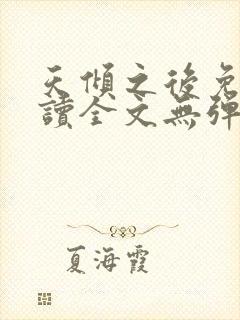 天傾之後免
讀全文無彈
夏海霞